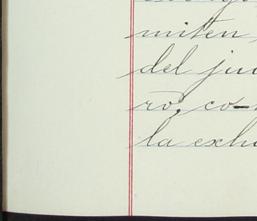 miten
del jui
ro, co-
la exhu